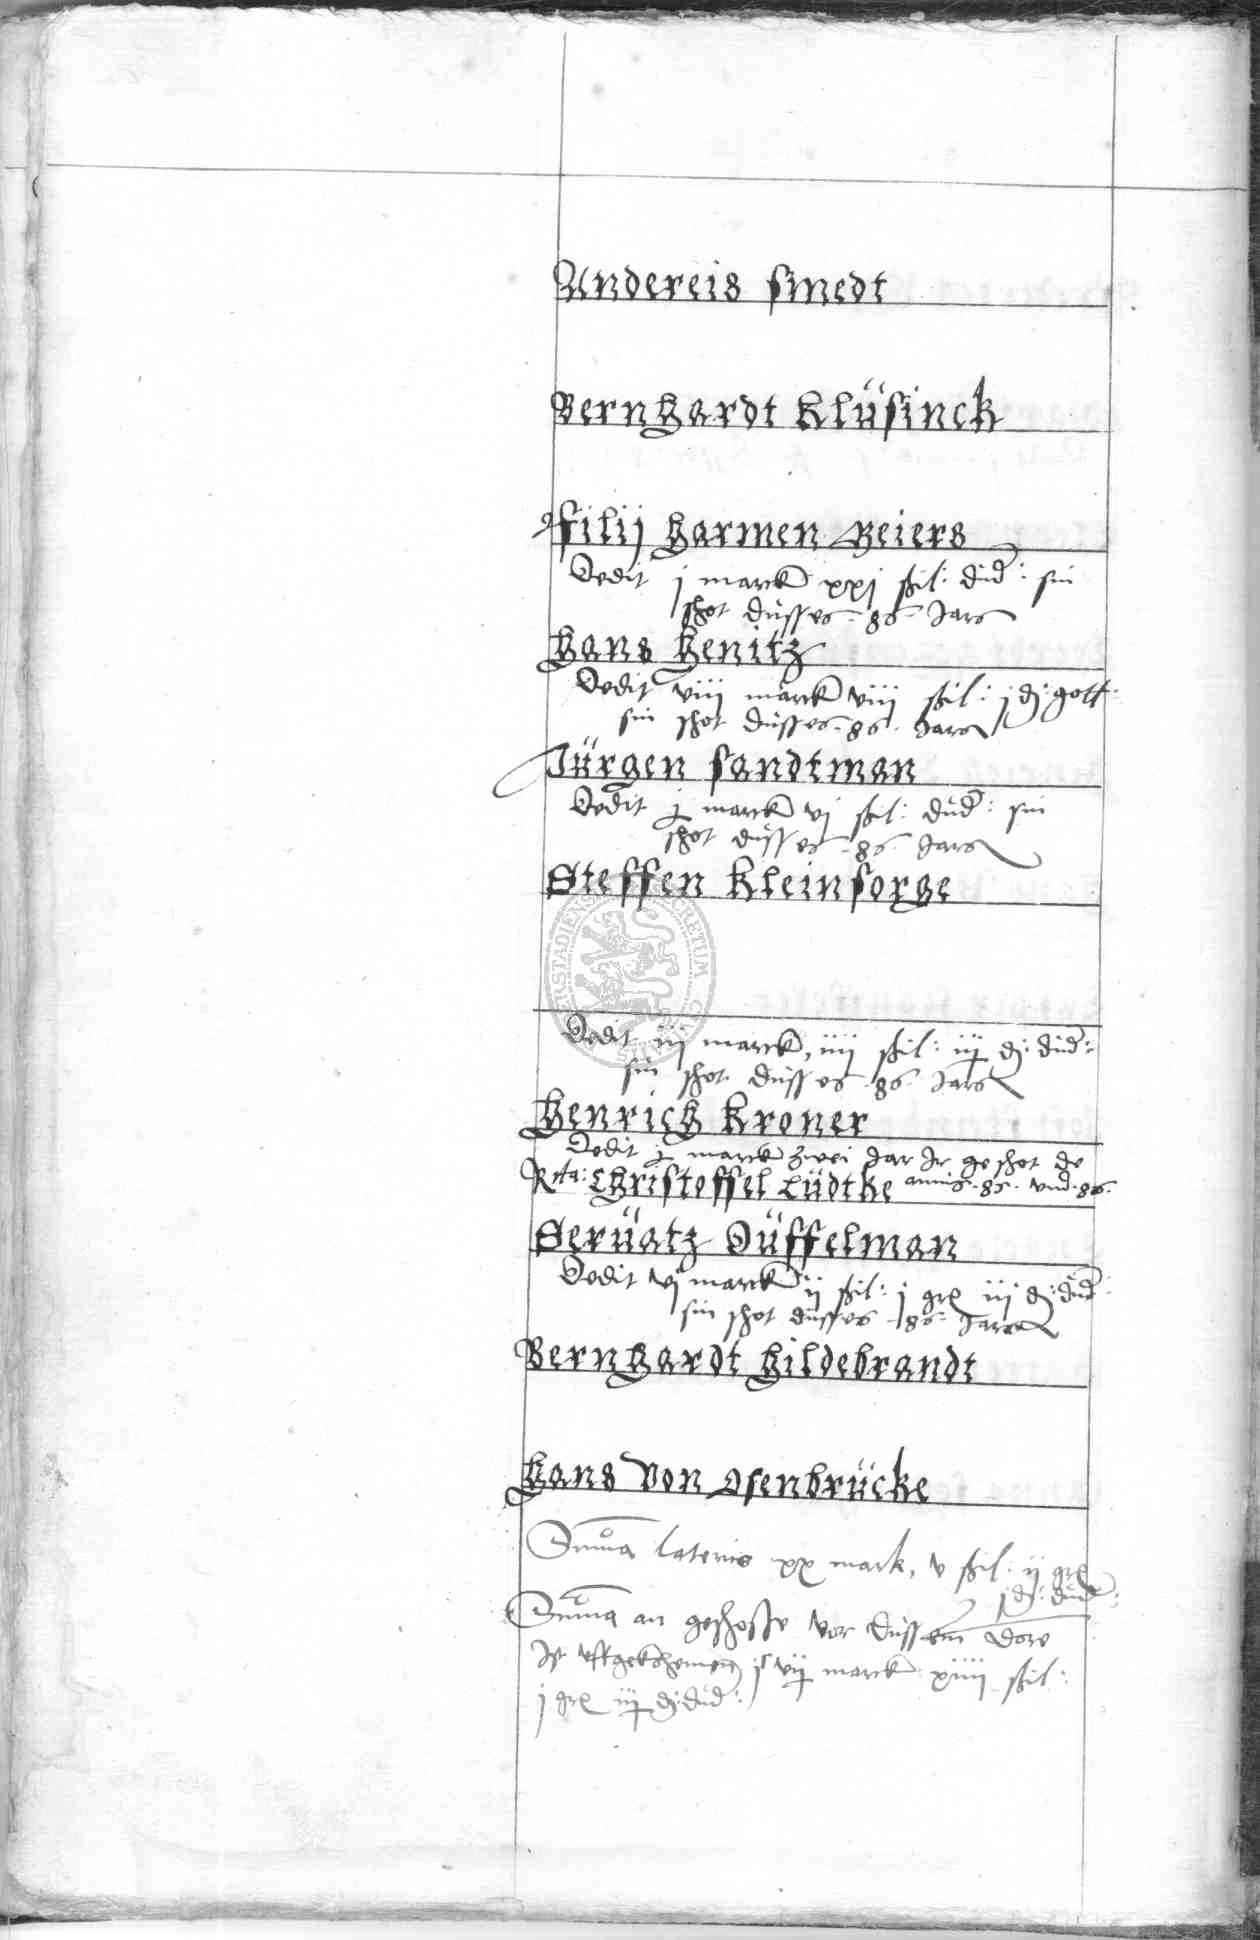 Andereis smedt
Bernhardt klüsinck
filij harmen Beiers
Dedit j marck xxj ßil: düd: sin
shot düsses 86 Jars
Hans henitz
Dedit viij marck viij ßil: j d: gott:
sin shot düsses 86 Jars
Jürgen sandtman
Dedit j marck vj ßil: düd: sin
shot düsses 86 Jars
Steffen kleinsorge
ERSTADIENS SECRETUM CIVITATIS
Dedit iij marck, iiij ßil: iij d: düd:
sin shot düsses 86 Jars
Henrich kroner
Dedit j marck zwei Jar Jr geshot de
Rta: Christoffel Lüdtke annis 85 vnd 86
Serüatz Düffelman
Dedit vj marck ij ßil: j gr iij d: düd:
sin shot düsses 86 Jars
Bernhardt hildebrandt
Hans von osenbrücke
Summa lateris xx mark, v ßil: ij gr
j d: düd:
Summa an geshosse vor düssem dore
Ist vffgekhomen marck xiiij ßil:
j gr iij d: düd: